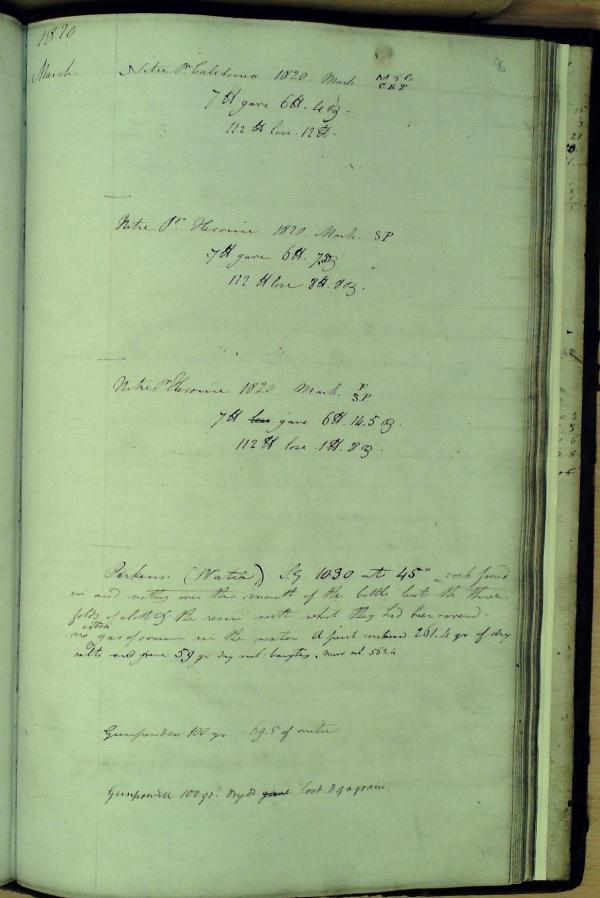 1820
March
Nitre Pr. Caledonia 1820. Mark M & Co
CRT
96
7 lb gave 6 lb. 4 oz.
112 lb lose 12 lb.
Nitre Pr. Heroine 1820. Mark. SP
7 lb gave 6 lb. 7 oz
112 lb lose 8 lb. 8 oz.
Nitre Pr Heroine 1820. Mark. F
SP
7 lb lose gave 6 lb. 14.5 oz.
112 lb lose 1 lb. 8 oz.
Perkins. (Water) S.G 1030 at 45° cork forced
in and resting over the mouth of the bottle but the three
folds of cloth & the rosin with what they had been cover'd.
no extra gas of course in the water A pint contained 261.4 gr of dry
salts and gave 59 gr dry sul. barytes.
Gunpowder 100 gr 69.5 of nitre
Gunpowder 100 gr. dryd gave lost .8 of a grain.